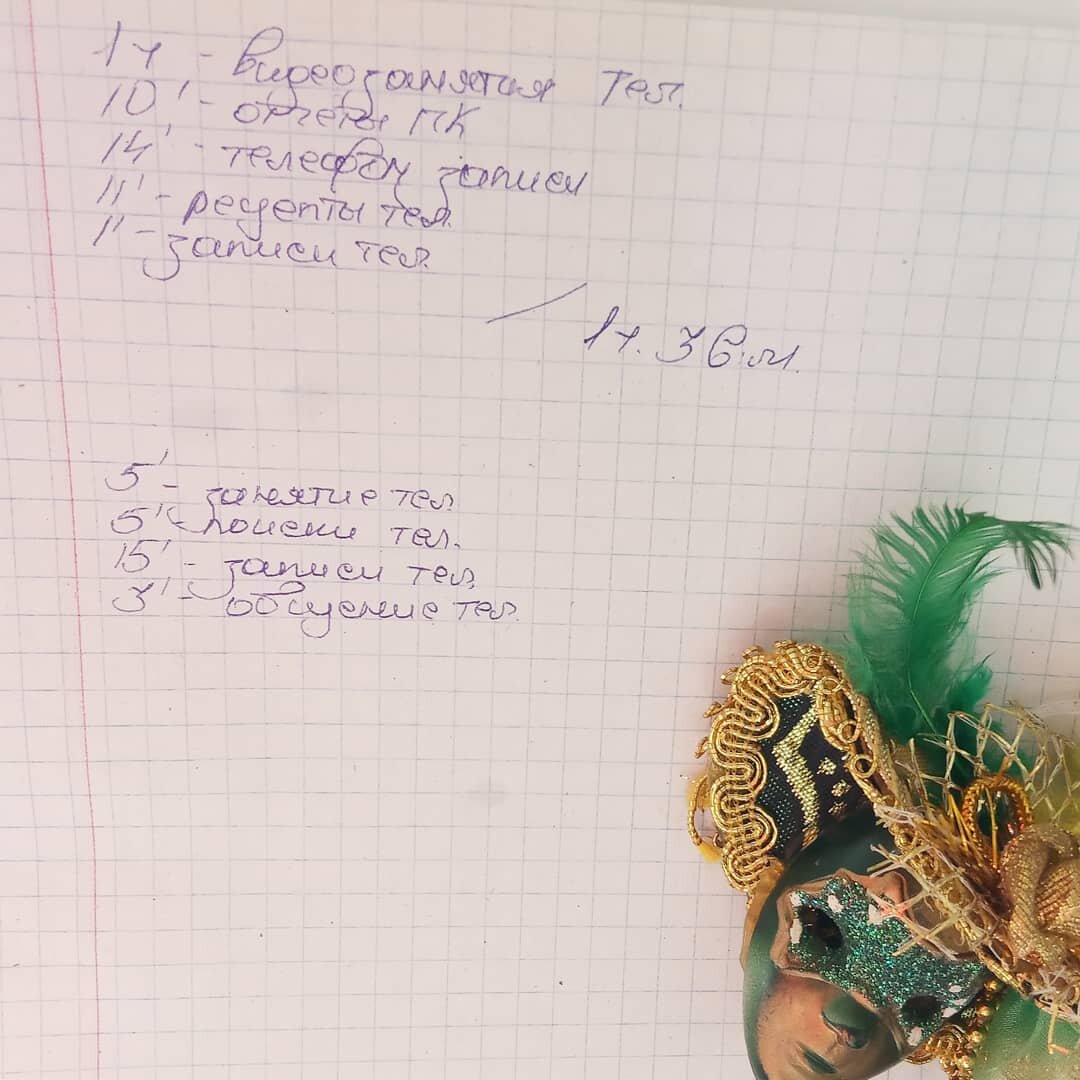 1ч - видеозанятия тел.
10' - отчеты ПК
14' - телефон записи
11' - рецепты тел.
1' - записи тел.
1ч. 36 м.
5' - занятие тел.
5' - поиски тел.
15' - записи тел.
3' - общение тел.